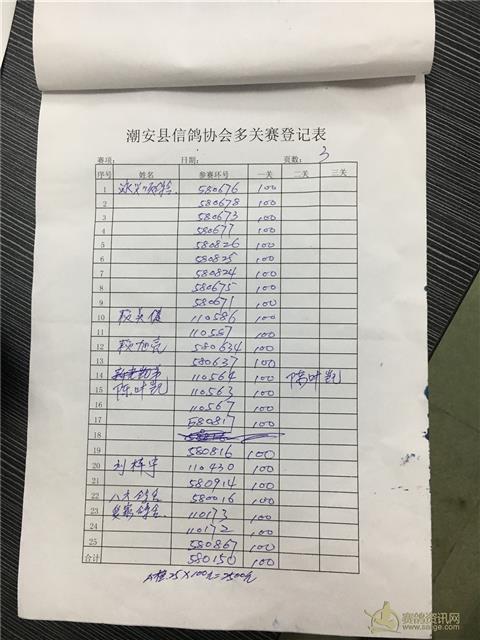 潮安县信鸽协会多关赛登记表
赛项: 日期: 页数: 3
序号 姓名 参赛环号 一关 二关 三关
1 580676 100
2 580678 100
3 580673 100
4 580677 100
5 580826 100
6 580825 100
7 580824 100
8 580675 100
9 580671 100
10 110586 100
11 110587 100
12 580634 100
13 580637 100
14 110564 100 陈叶凯
15 陈叶凯 110563 100
16 110567 100
17 580817 100
18
19 580816 100
20 110430 100
21 580914 100
22 580016 100
23 110173 100
24 110172 100
25 580867 100
合计 580150 100
25×100元=2500元
赛鸽资讯网
www.saige.com